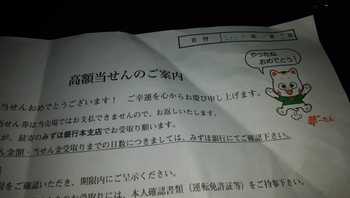 やったね
おめでとう！
高額当せんのご案内
当せんおめでとうございます！　ご幸運を心からお慶び申し上げます。
せん券は当売場ではお支払できませんので、お返しいたします。
が、最寄のみずほ銀行本支店でお受取り願います。
ん金額・当せん金受取りまでの日数につきましては、みずほ銀行にてご確認下さい。
をご確認いただき、期限内にご呈示ください。
お受取りには、本人確認書類（運転免許証等）をご持参下さい。